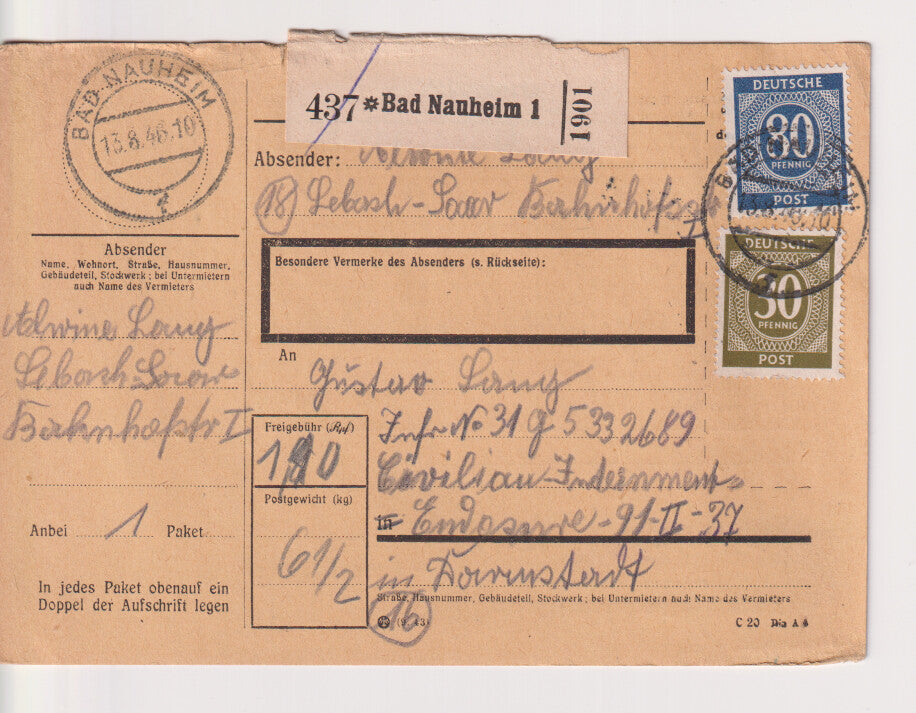 BAD-NAUHEIM
13.8.46.10
1
437 * Bad Nauheim 1 1901
DEUTSCHE
80
PFENNIG
POST
DEUTSCHE
30
PFENNIG
POST
Absender: Alwine Lang
(18) Lebach-Saar Bahnhofstr
Absender
Name, Wohnort, Straße, Hausnummer,
Gebäudeteil, Stockwerk; bei Untermietern
auch Name des Vermieters
Alwine Lang
Lebach-Saar
Bahnhofstr I
Anbei 1 Paket
In jedes Paket obenauf ein
Doppel der Aufschrift legen
Besondere Vermerke des Absenders (s. Rückseite):
An
Gustav Lang
Freigebühr (Rpf)
110
Postgewicht (kg)
6 1/2
No 31 G 5332689
Civilian Indernment-
in Enclosure-91-II-37
in Darmstadt
Straße, Hausnummer, Gebäudeteil, Stockwerk; bei Untermietern auch Name des Vermieters
(16)
(9. 43)
C 20 Din A 6